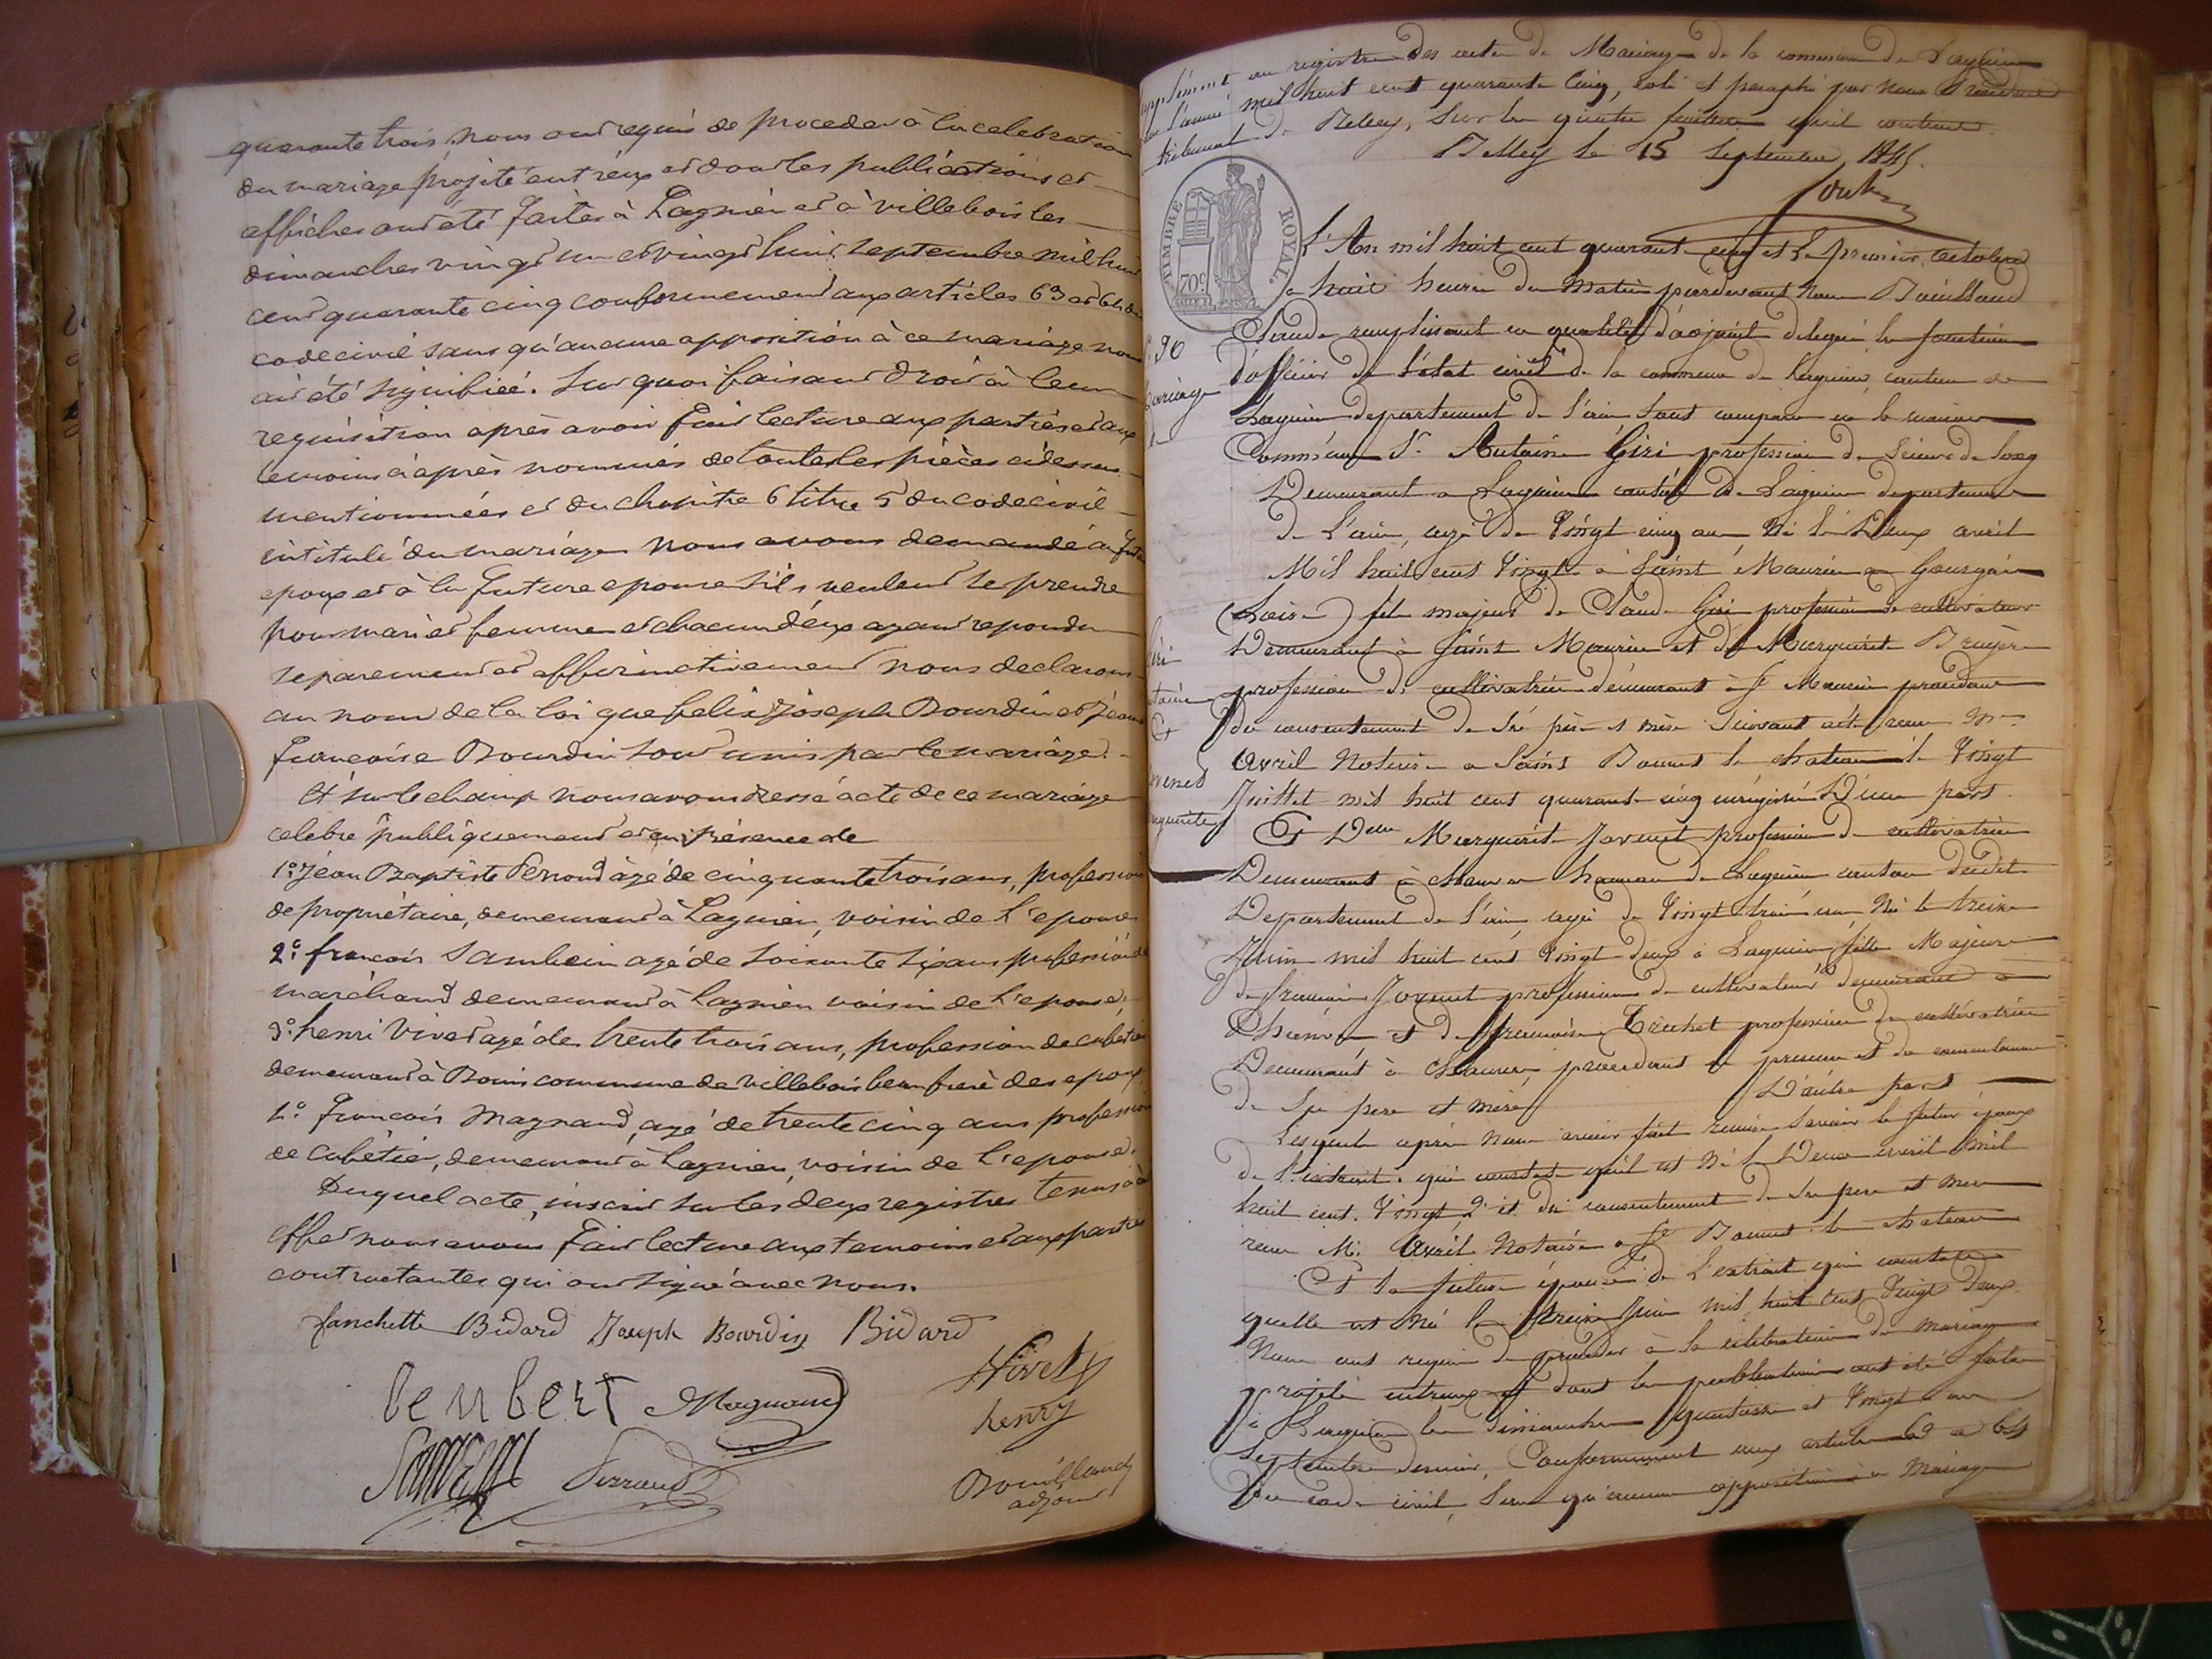 quarante trois, nous ont requis de proceder à la celebration
du mariage projité entr'eux et dont les publications et
affiches ont été faites à Lagnieu et à villebois les
dimanches vingt un et vingt huit septembre mil huit
cent quarante cinq conformement aux articles 63 et 64 du
code civil sans qu'aucune opposition à ce mariage nous
ait été signifiée. Sur quoi faisant droit à leur
requisition après avoir fait lecture aux parties et aux
temoins ci après nommés de toutes les pièces ci dessus
mentionnées et du chapitre 6 titre 5 du code civil
intitulé du mariage nous avons demandé au futur
epoux et à la future epouse s'ils veulent se prendre
pour mari et femme et chacun d'eux ayant repondu
separement et affirmativement nous declarons
au nom de la loi que felix Joseph Bourdin et Jeanne
francoise Bourdin sont unis par le mariage.
Et sur le champ nous avons dressé acte de ce mariage
celebré publiquement et en présence de
1º. Jéan Baptiste Perroud âgé de cinquante trois ans, profession
de propriétaire, demeurant à Lagnieu, voisin de l'epouse
2º. francois Sambein agé de soixante six ans profession de
marchand demeurant à Lagnieu voisin de l'epouse,
3º. henri Vivet agé de trente trois ans, profession de
demeurant à Bouis commune de villebois beau frere des epoux
4º. francois Magnand, agé de trente cinq ans profession
de cabétier, demeurant à Lagnieu, voisin de l'epouse.
Duquel acte, inscrit sur les deux registres tenus à cet
effet nous avons fait lecture aux temoins et aux parties
contractantes qui ont signé avec nous.
fanchette Bidard Joseph Bourdin Bidard
Magnand hivet
henry
Perroud
Bouilland
adjoint
supplément au registre des actes de Mariage de la commune de Lagnieu
pour l'année mil huit cent quarante cinq, coté et paraphé par nous
tribunal de Belley, sur les quatre feuillets qu'il contient.
Belley le 15 Septembre 1845.
TIMBRE ROYAL
70c
L'An mil huit cent quarante cinq et Le premier, octobre
a huit heures du Matin pardevant Nous Bouilland
Claude remplissant en qualité d'adjoint delegué les fonctions
90
d'officier de l'état civil de la commune de Lagnieu, canton de
Mariage
Lagnieu departement de l'ain sont comparu en la maison
Commune Sr. Antoine Giri profession de Scieur de long
Demeurant a Lagnieu canton de Lagnieu departement
de l'ain, agé de Vingt cinq ans, Né le Deux avril
Mil huit cent Vingt à Saint Maurice en Gourgois
(Loire) fils majeur de Claude Giri profession de cultivateur
Demeurant à Saint Maurice et de Marguerite Bruyère
profession de cultivatrice demeurant à St Maurice procedant
du consentement de Ses père et mère suivant acte reçu Me
Avril Notaire a Saint Bonnet le chateau le Vingt
Juillet mil huit cent quarante cinq enrégistré D'une part.
Et Delle Marguerite Jovenet profession de cultivatrice
Demeurant à hameau de Lagnieu canton dédit
Departement de l'ain, agée de Vingt trois ans, Né le treize
Juin mil huit cent Vingt deux a Lagnieu fille Majeure
de francois Jovenet profession de cultivateur demeurant a
et de francoise Truchet profession de cultivatrice
Demeurant à procedant en presence et du consentement
de Ses pere et mere, D'autre part
Lesquels après Nous avoir fait remise Savoir le futur époux
de l'extrait qui constate qu'il est Né le Deux avril mil
huit cent Vingt, 2º et du consentement de Ses pere et mere
recu Me Avril Notaire a St Bonnet le chateau
Et la future épouse de L'extrait qui constate
quelle est Né le treize Juin mil huit cent Vingt deux.
Nous ont requis de proceder à la celebration du mariage
projeté entreux et dont les publications ont été faites
à Lagnieu les Dimanches quatorze et Vingt un
Septembre dernier, Conformement aux articles 63 et 64
du code civil, Sans qu'aucune opposition à mariage